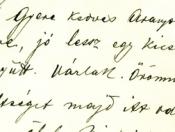 Gyere kedves Aranyo
re, jó lesz egy kics
gyütt. Várlak. Örömm
ltséget majd itt od